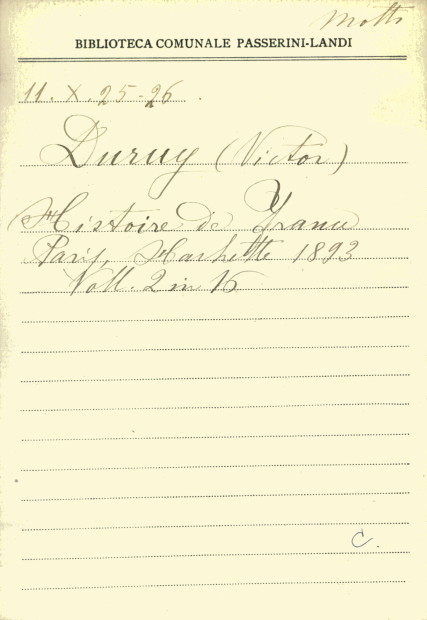 Motti
BIBLIOTECA COMUNALE PASSERINI-LANDI
11. X. 25-26.
Duruy (Victor)
Histoire de France
Paris, Hachette 1893
Voll. 2 in 16
C.